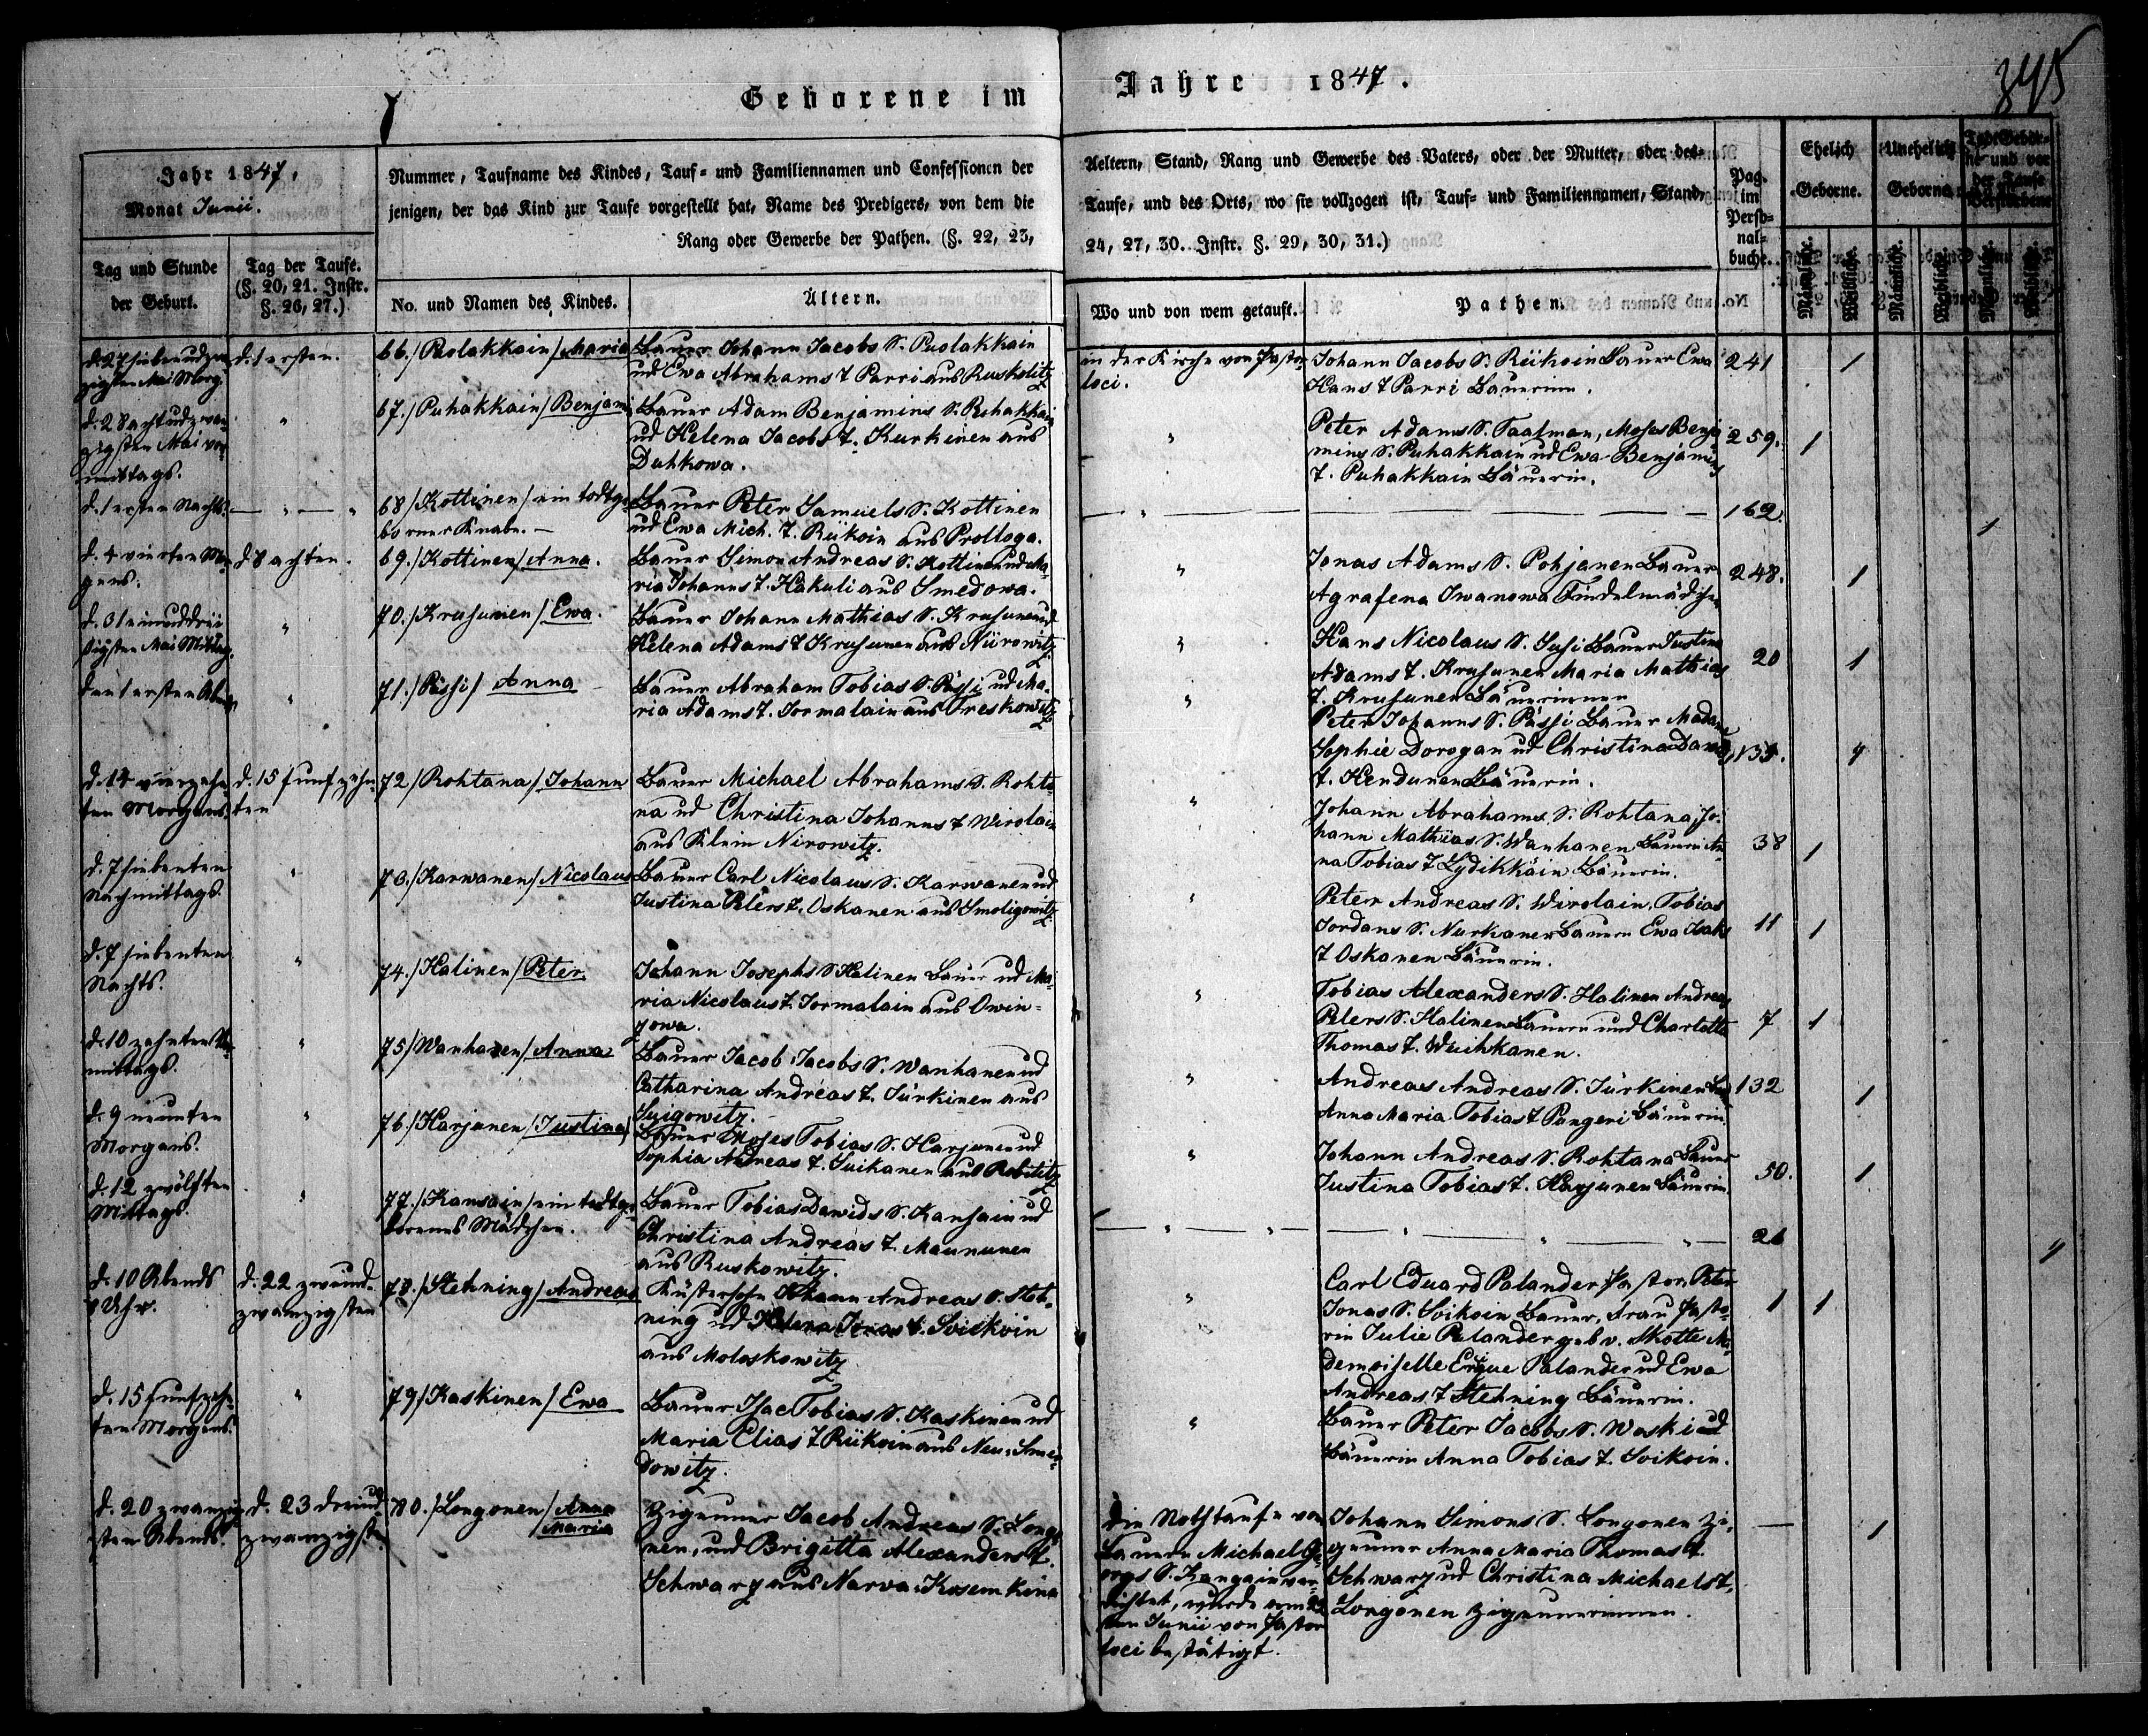 Geborene im Jahre 1847.
345
Jahr 1847.
Monat Junii.
Nummer, Taufname des Kindes, Tauf- und Familiennamen und Confessionen der
jenigen, der das Kind zur Taufe vorgestellt hat, Name des Predigers, von dem die
Rang oder Gewerbe der Pathen. (§. 22, 23,
Aeltern, Stand, Rang und Gewerbe des Vaters, oder der Mutter, oder des-
Taufe, und des Orts, wo sie vollzogen ist, Tauf- und Familiennamen, Stand,
24, 27, 30. Instr. §. 29, 30, 31.)
Pag.
im
Perso-
nal-
buche.
Ehelich
Geborne.
Unehelich
Geborne.
Todt Gebor-
ne und vor
der Taufe
Verstorbene
Tag und Stunde
der Geburt.
Tag der Taufe.
(§. 20, 21. Instr.
§. 26, 27.)
No. und Namen des Kindes.
Ältern.
Wo und von wem getauft.
Pathen.
No.
Männliche.
Weibliche.
Männliche.
Weibliche.
Männliche.
Weibliche.
d. 27 siebenudzwan
zigsten Mai Morg.
d. 1 ersten.
66./Puolakkain/Maria
Bauer Johann Jacobs S. Puolakkain
ud Ewa Abrahams T Parri aus Ruskolitz
in der Kirche von Pastor
loci.
Johann Jacobs S. Rükoin Bauer Ewa
Hans T Parri Bäuerinn.
241
1
d. 28 achtudzwan
zigsten Mai vor
mittags.
"
67./Puhakkain/Benjami
Bauer Adam Benjamins S. Puhakkain
ud Helena Jacobs T. Kurkinen aus
Duhkowa.
"
Peter Adams S. Taalman, Moses Benja
mins S. Puhakkain ud Ewa Benjamins
T. Puhakkain Bäuerin.
259.
1
d. 1 ersten Nachts.
"
68/Kottinen/ein todtge
borner Knabe.
Bauer Peter Samuels S. Kottinen
ud Ewa Mich. T. Rükoin aus Prolloga.
"
162.
1
d. 4 vierten Mor
gens.
d. 8 achten.
69./Kottinen/Anna.
Bauer Simon Andreas S. Kottinen ud Ma
ria Johanns T. Hakuli aus Smedowa.
"
Jonas Adams S. Pohjanen Bauer
Agrafena Iwanowa Findelmädchen
248.
1
d. 31 einuddrei
sigsten Mai Mittag.
"
70./Krusunen/Ewa.
Bauer Johann Mathias S. Krusunen ud
Helena Adams T Krusunen aus Nürowitz
"
Hans Nicolaus S. Susi Bauer Justina
Adams T. Krusunen Maria Mathias
T. Krusunen Bäuerinnen
20
1
den 1 ersten Abends
"
71./Pässi/Anna
Bauer Abraham Tobias S. Pässi ud Ma-
ria Adams T. Tormalain aus Treskowitz
"
Peter Johanns S. Pässi Bauer Madame
Sophie Dorogan ud Christina Davids
T. Hendunen Bäuerin.
135.
1
d. 14 vierzehn
ten Morgens.
d. 15 funfzehn
ten
72/Rohtana/Johann
Bauer Michael Abrahams S. Rohta
na ud Christina Johanns T Wirolain
aus Klein Nirowitz.
"
Johann Abrahams S. Rohtana, Jo-
hann Mathias S. Wanhanen Bauern An
na Tobias T Lydikkäin Bäuerin.
38
1
d. 7 siebenten
Nachmittags
"
73./Karwanen/Nicolaus
Bauer Carl Nicolaus S. Karwanen ud
Justina Peters T. Oskanen aus Smoligowitz
"
Peter Andreas S. Wirolain, Tobias
Jordans S. Nurkanen Bauern Ewa Isaks
T Oskanen Bäuerin.
11
1
d. 7 siebenten
Nachts.
"
74./Halinen/Peter
Johann Josephs S Halinen Bauer ud Ma
ria Nicolaus T. Tormalain aus Owin-
zowa.
"
Tobias Alexanders S. Halinen Andreas
Peters S. Halinen Bauern und Charlotta
Thomas T. Wuihkanen.
7
1
d. 10 zehnten
mittags.
"
75/Wanhanen/Anna
Bauer Jacob Jacobs S. Wanhanen ud
Catharina Andreas T. Türkinen aus
Suigowitz.
"
Andreas Andreas S. Türkinen
Anna Maria Tobias T Pangeri Bäuerin.
132
1
d. 9 neunten
Morgens.
"
76./Harjunen/Justina
Bauer Moses Tobias S. Harjunen ud
Sophia Andreas T. Suikanen aus Robititz
"
Johann Andreas S. Rohtana Bauer
Justina Tobias T. Harjunen Bäuerin.
50.
1
d. 12 zwölften
Mittags.
"
77./Kansain/ein todtge
borenes Mädchen.
Bauer Tobias Dawids S. Kansain ud
Christina Andreas T. Maununen
aus Ruskowitz.
"
21
1
d. 10 Abends
Uhr.
d. 22 zweiud-
zwanzigsten
78./Stehning/Andreas
Küstersohn Johann Andreas S. Steh-
ning ud Helena Jonas T. Soikoin
aus Moloskowitz
"
Carl Eduard Palander Pastor, Peter
Jonas S. Soikoin Bauer, Frau Pasto-
rin Julie Palander geb v. Skotte Ma
demoiselle Palander ud Ewa
Andreas T Stehning Bäuerin.
1
1
d. 15 funfzehn
ten Morgens.
"
79/Kaskinen/Ewa
Bauer Isac Tobias S. Kaskinen ud
Maria Elias T Rükoin aus Neu-Sme-
dowitz.
"
Bauer Peter Jacobs S. Woski ud
Bäuerin Anna Tobias T. Soikoin.
d. 20 zwanzig
sten Abends.
d. 23 dreiud
zwanzigsten
80./Longonen/Anna
Maria
Zigeuner Jacob Andreas S. Longo
nen, und Brigitta Alexanders T.
Schwarz aus Narva-Kosemkina
Die Nothtaufe von
Bauern Michael Ge
orgs S. Kangain ver
richtet, wurde vom 23
ten Junii von Pastor
loci bestätigt.
Johann Simons S. Longonen Zi-
geuner Anna Maria Thomas T.
Schwarz ud Christina Michaels T.
Longonen Zigeunerinnen.
1